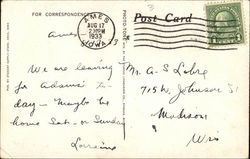 FOR CORRESPONDENCE
AMES
AUG 17
230 PM
1933
IOWA
Post Card
Ames
We are leaving
for Adams to-
day - Maybe be
home Sat. or Sunday
Lorraine
Mr. A-S
715 W. Johnson St
Madison
Wis